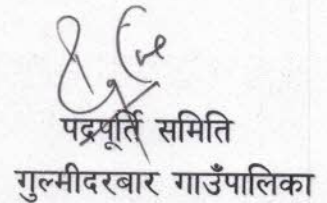 पदपूर्ति समिति
गुल्मीदरबार गाउँपालिका